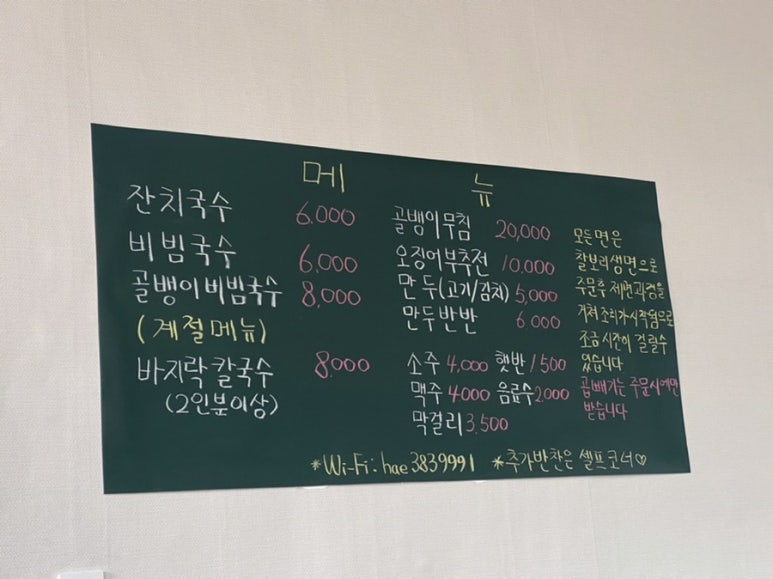 메 뉴
잔치국수 6,000
비빔국수 6,000
골뱅이비빔국수 8,000
(계절메뉴)
바지락칼국수 8,000
(2인분이상)
골뱅이무침 20,000
오징어부추전 10,000
만두(고기/김치) 5,000
만두반반 6000
소주 4,000 햇반 1500
맥주 4000 음료수 2,000
막걸리 3,500
모든면은
찰보리생면으로
주문후 제면과정을
거쳐 조리가시작됨으로
조금 시간이 걸릴수
있습니다
곱빼기는 주문시에만
받습니다
*Wi-Fi: hae3839991 *추가반찬은 셀프코너♡